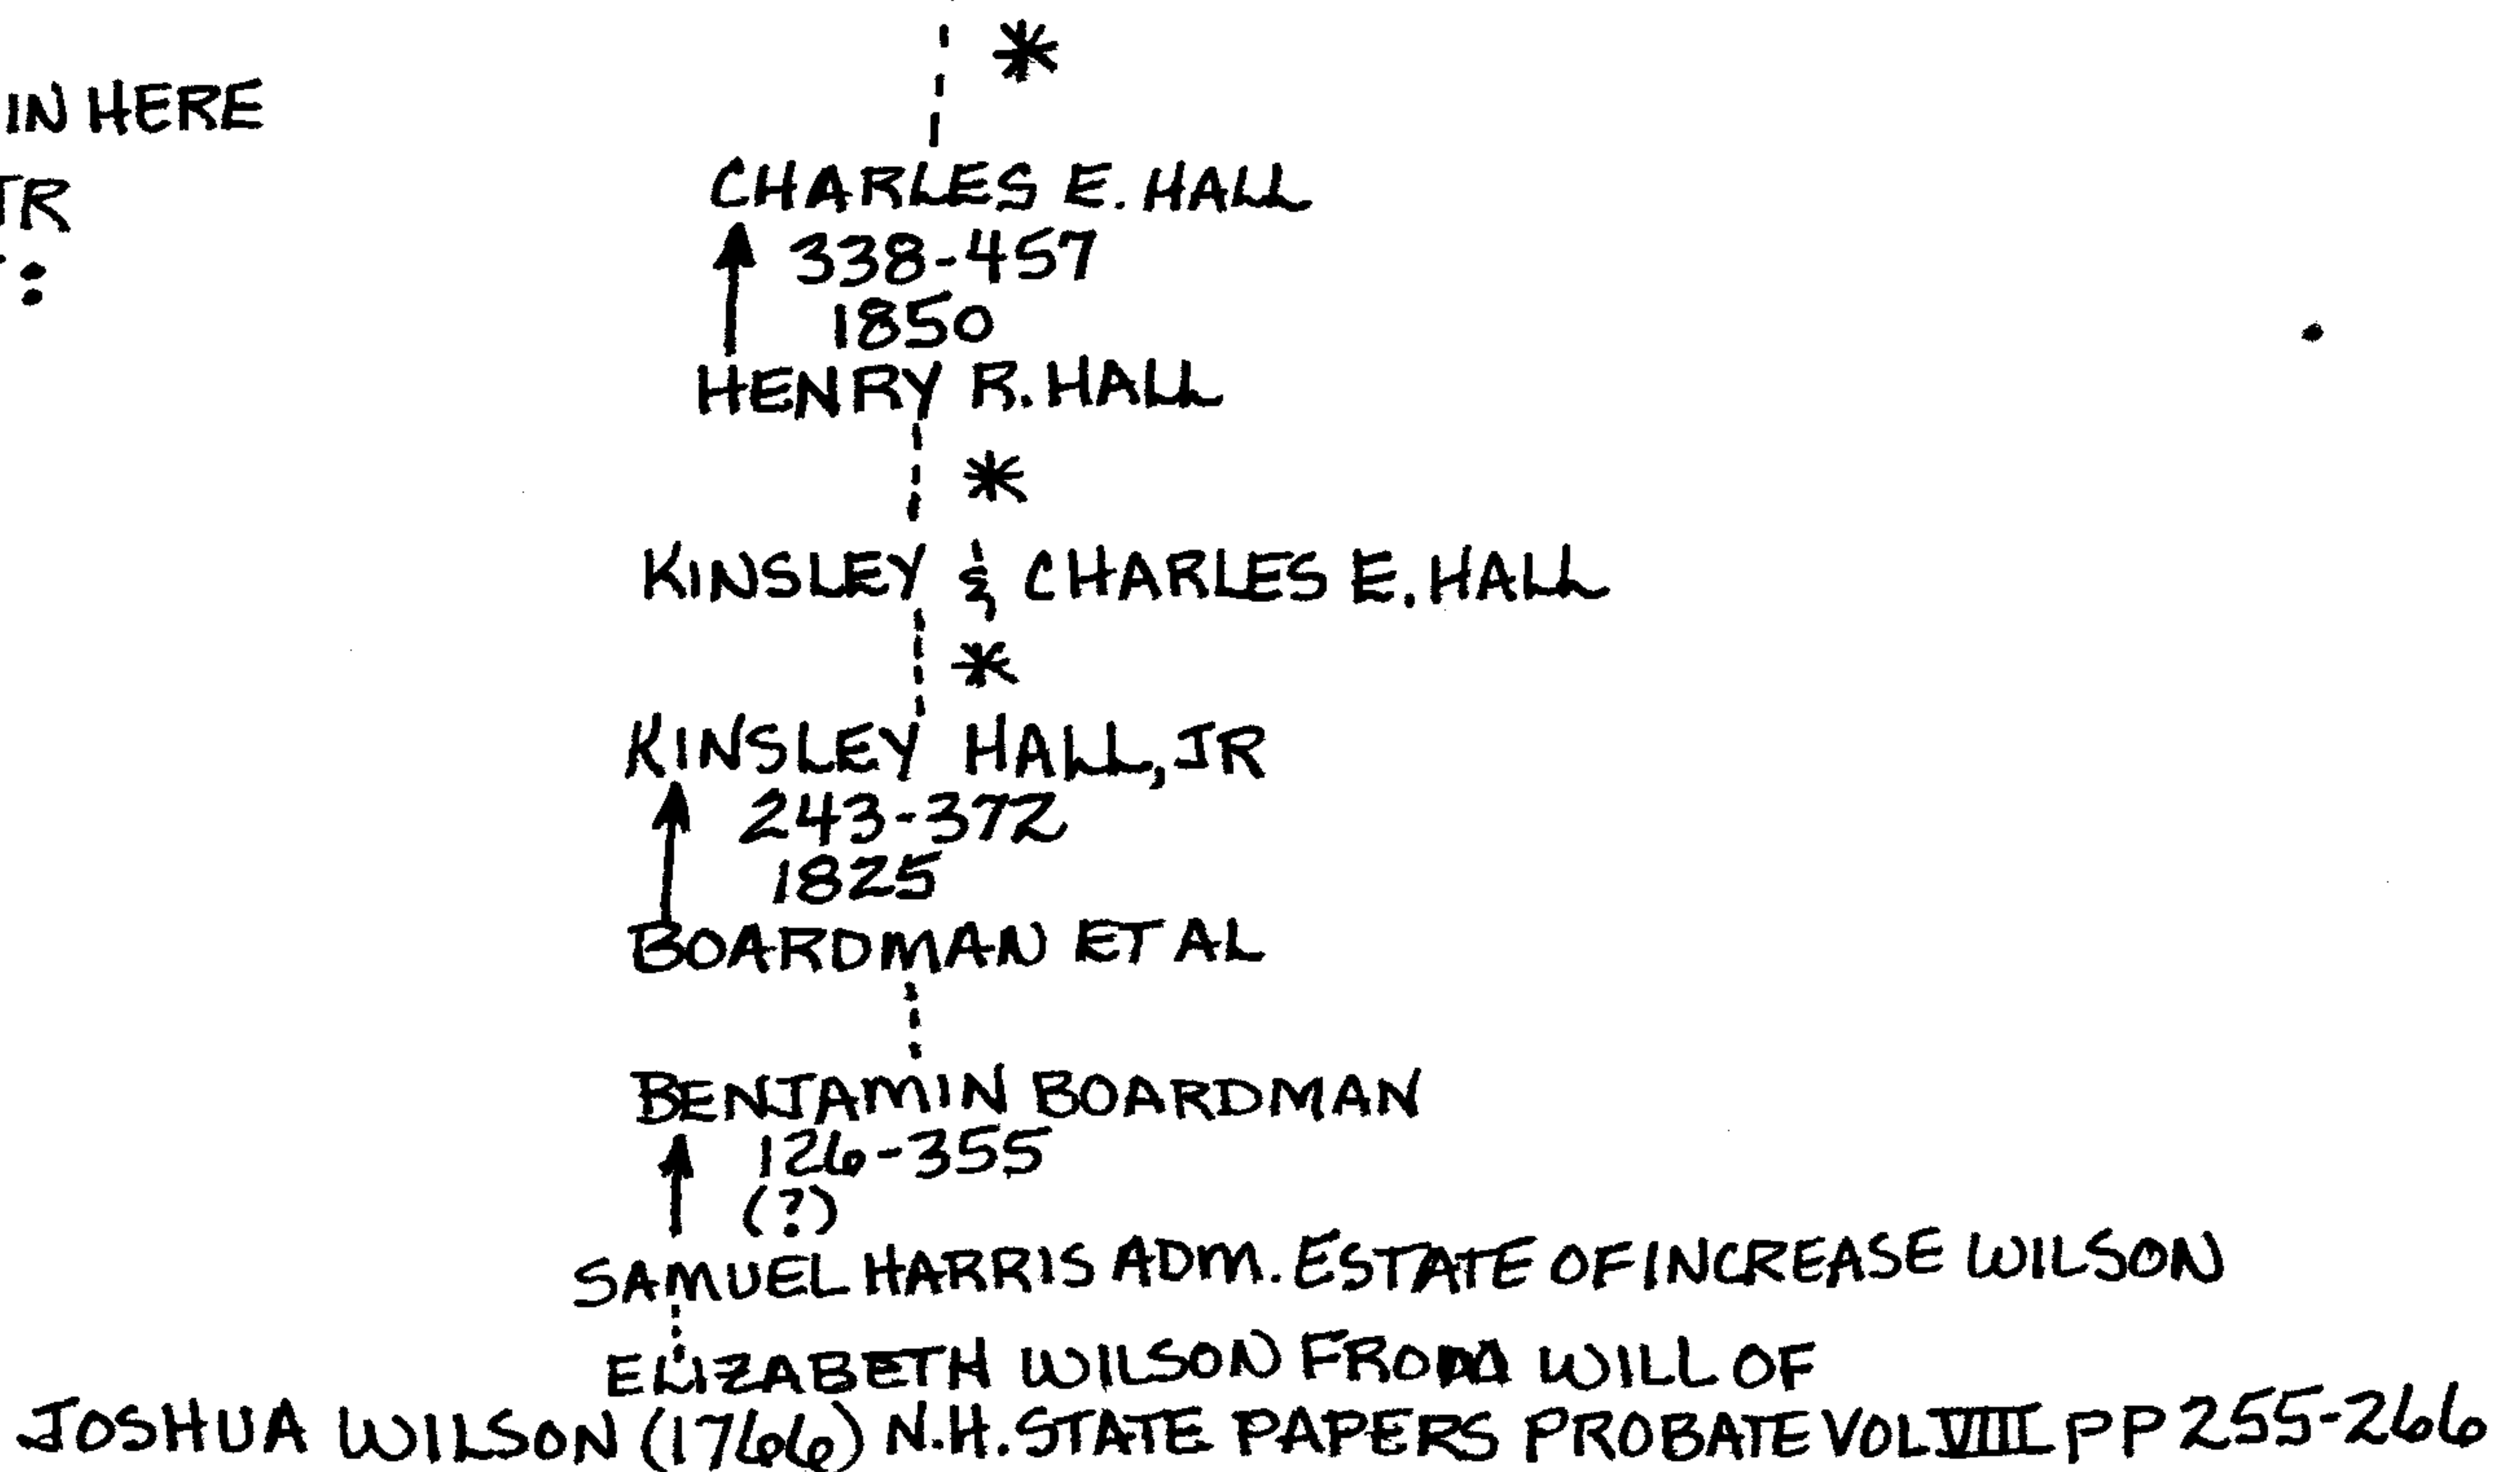 *
IN HERE
JR
:
CHARLES E. HALL
338-457
1850
HENRY R. HALL
*
KINSLEY & CHARLES E. HALL
*
KINSLEY HALL, JR
243-372
1825
BOARDMAN ET AL
BENJAMIN BOARDMAN
126-355
(?)
SAMUEL HARRIS ADM. ESTATE OF INCREASE WILSON
ELIZABETH WILSON FROM WILL OF
JOSHUA WILSON (1766) N.H. STATE PAPERS PROBATE VOL VIII PP 255-266